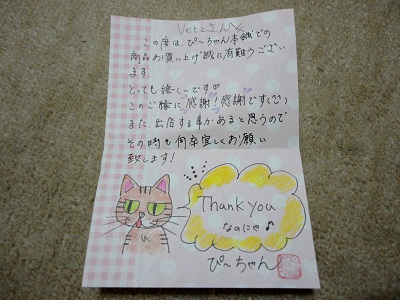 Vetzさんへ
この度は、ぴ〜ちゃん本舗での
商品お買い上げ誠に有難うござい
ます
とっても嬉し〜です♡
このご縁に感謝!感謝です(^^)
また、出店する事があると思うので
その時も何卒宜しくお願い
致します!
Thank you
なのにゃ♪
ぴ〜ちゃん